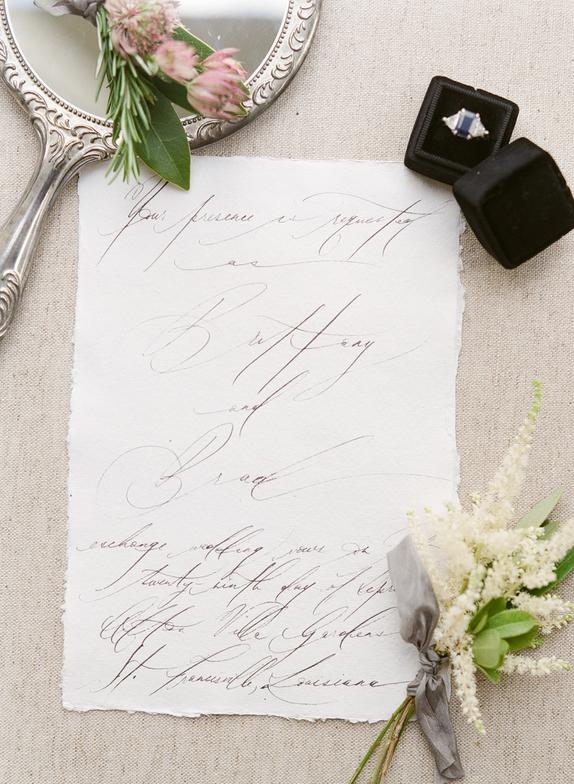 Your presence is requested
as
Brittany
and
Brad
exchange wedding vows on
twenty-ninth day of
Villa Gardens
St. Francisville, Louisiana